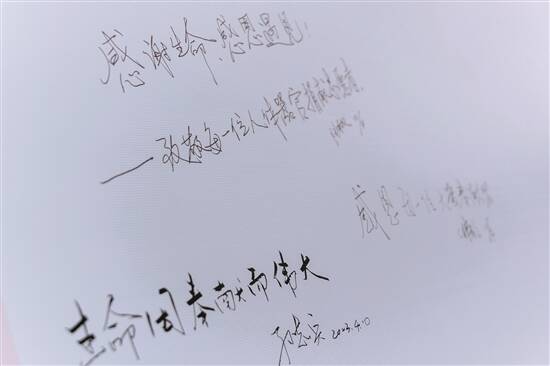 感谢生命、感恩遇见!
——致敬每一位人体器官捐献志愿者
感恩每一位
生命因奉献而伟大
2023.4.10